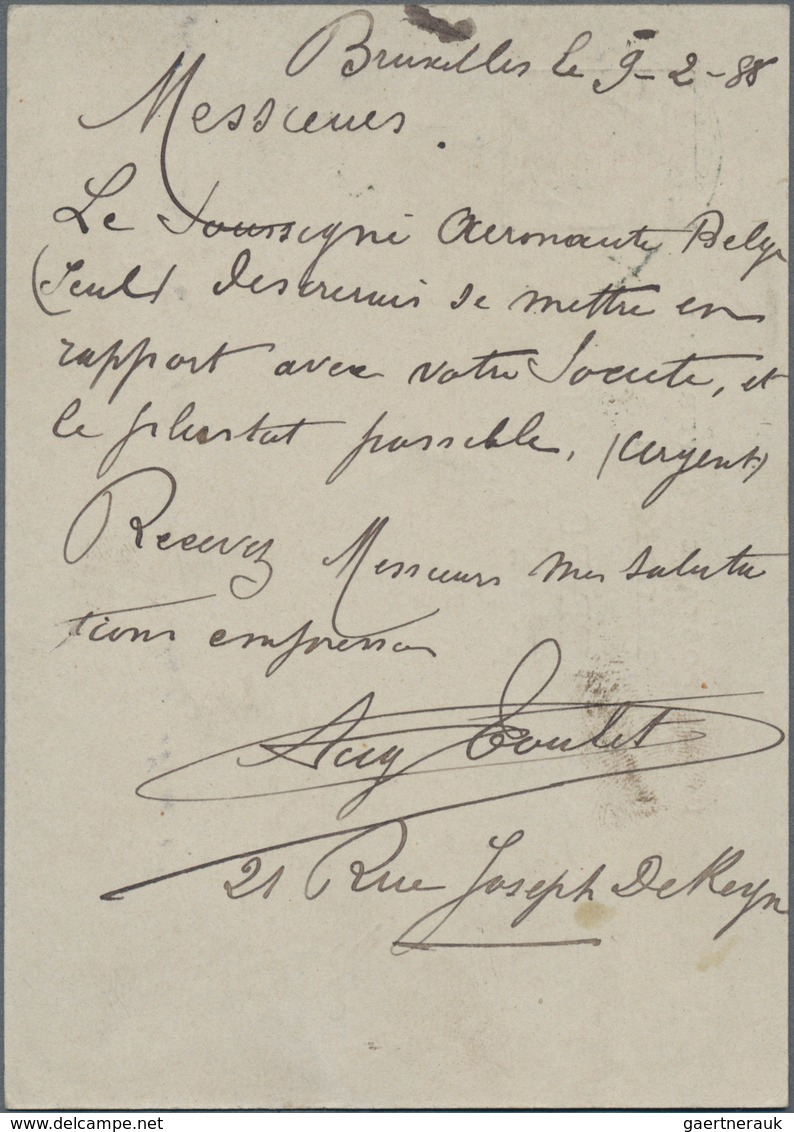 Bruxelles le 9-2-88
Messieurs.
Le Soussigné Aeronaute Belge
(seul) desirerais se mettre en
rapport avec votre Societe, et
le plustot possible, (urgent)
Recevez Messieurs mes saluta
tions empressees
Aug Toulet
21 Rue Joseph DeKeyn
gaertnerauk / delcampe.net